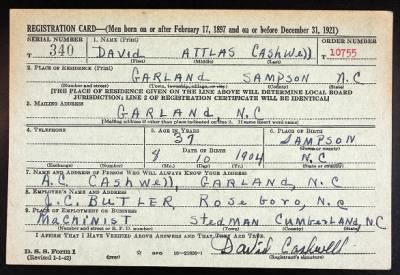 REGISTRATION CARD—(Men born on or after February 17, 1897 and on or before December 31, 1921)
SERIAL NUMBER 1. NAME (Print) ORDER NUMBER
T 340 DAVID ATTLAS CASHWELL T 10755
(First) (Middle) (Last)
2. PLACE OF RESIDENCE (Print)
GARLAND SAMPSON N.C
(Number and street) (Town, township, village, or city) (County) (State)
[THE PLACE OF RESIDENCE GIVEN ON THE LINE ABOVE WILL DETERMINE LOCAL BOARD
JURISDICTION; LINE 2 OF REGISTRATION CERTIFICATE WILL BE IDENTICAL]
3. MAILING ADDRESS
GARLAND, N.C
[Mailing address if other than place indicated on line 2. If same insert word same]
4. TELEPHONE 5. AGE IN YEARS 6. PLACE OF BIRTH
37 SAMPSON
DATE OF BIRTH (Town or county)
4 10 1904 N.C
(Exchange) (Number) (Mo.) (Day) (Yr.) (State or country)
7. NAME AND ADDRESS OF PERSON WHO WILL ALWAYS KNOW YOUR ADDRESS
A.C. CASHWELL, GARLAND, N.C
8. EMPLOYER'S NAME AND ADDRESS
J.C. BUTLER ROSE GORO, N.C
9. PLACE OF EMPLOYMENT OR BUSINESS
MACHINIST STEDMAN CUMBERLAND, N.C
(Number and street or R. F. D. number) (Town) (County) (State)
I AFFIRM THAT I HAVE VERIFIED ABOVE ANSWERS AND THAT THEY ARE TRUE.
D. S. S. Form 1 David Cashwell
(Revised 1-1-42) (over) GPO 16—21630-1 (Registrant's signature)